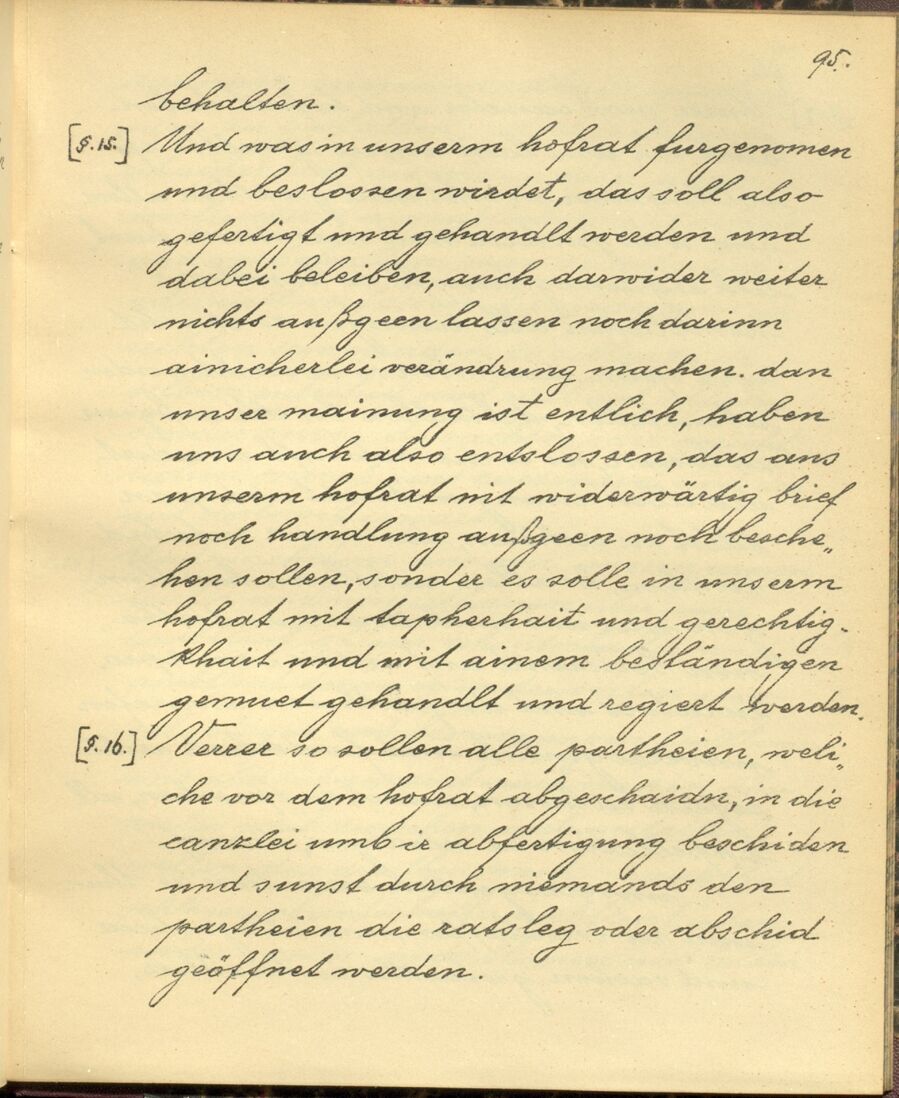 95.
behalten.
[§.15.] Und was in unserm hofrat furgenomen
und beslossen wirdet, das soll also
gefertigt und gehandlt werden und
dabei beleiben, auch darwider weiter
nichts außgeen lassen noch darinn
ainicherlei verändrung machen. dan
unser mainung ist entlich, haben
uns auch also entslossen, das aus
unserm hofrat nit widerwärtig brief
noch handlung außgeen noch besche„
hen sollen, sonder es solle in unserm
hofrat mit tapherhait und gerechtig-
khait und mit ainem beständigen
gemuet gehandlt und regiert werden.
[§.16.] Verrer so sollen alle partheien, weli„
che vor dem hofrat abgeschaidn, in die
canzlei umb ir abfertigung beschiden
und sunst durch niemands den
partheien die ratsleg oder abschid
geöffnet werden.